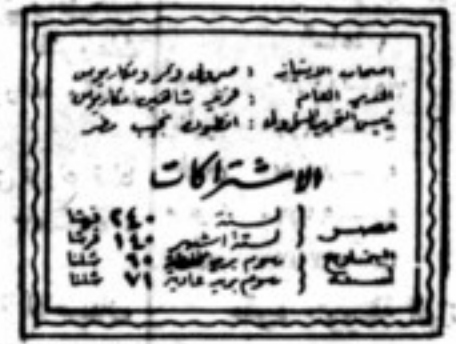 اصحاب الامتياز : صروف ونمر ومكاريوس
المدير العام : فريد شاهين مكاريوس
رئيس التحرير المسؤول : انطون نجيب مطر
الاشتراكات
مصر { لسنة ٢٤٠ قرشا
لستة اشهر ١٤٠ قرشا
الخارج { رسوم بريد ٩٥ شلنا
لسنة رسوم بريد عادية ٧١ شلنا